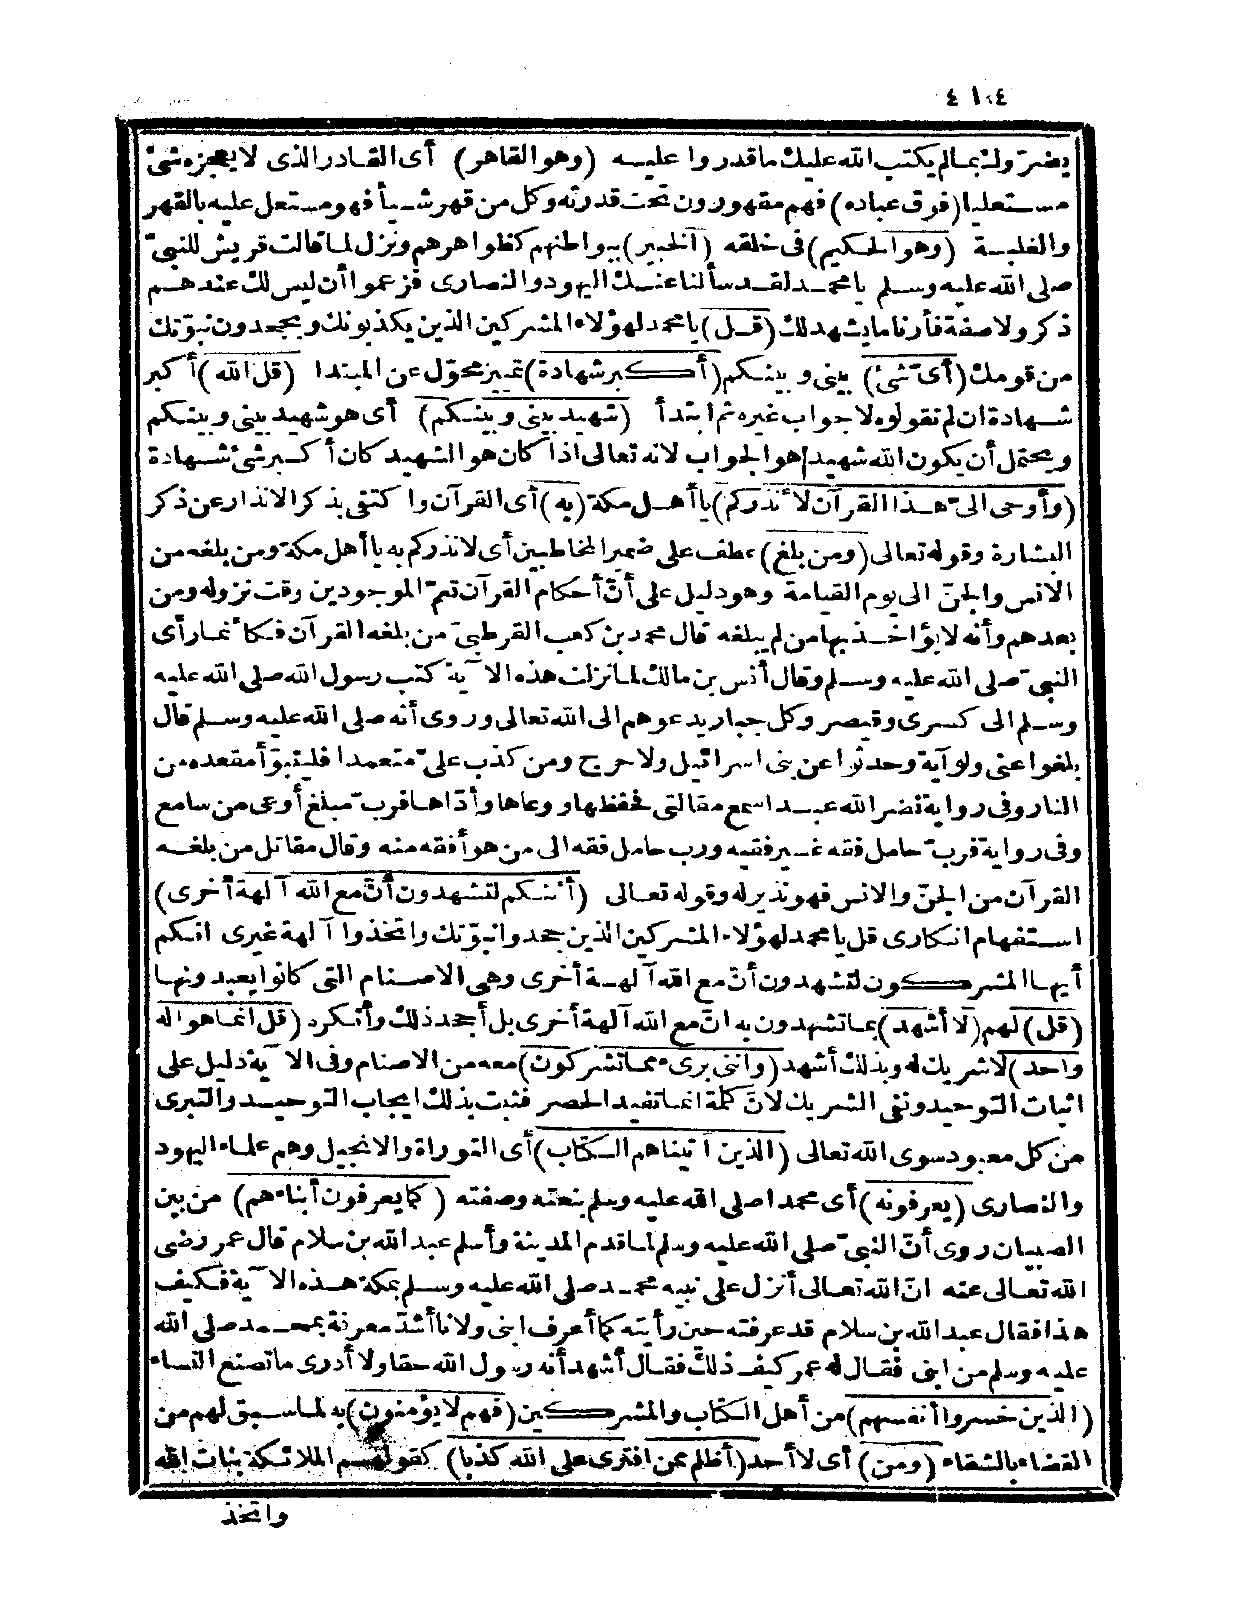 ٤١٤
يضرّوك بما لم يكتب الله عليك ما قدروا عليه (وهو القاهر) أى القادر الذى لا يعجزه شئ
مستعليا (فوق عباده) فهم مقهورون تحت قدرته وكل من قهر شيأ فهو مستعل عليه بالقهر
والغلبة (وهو الحكيم) فى خلقه (الخبير) ببواطنهم كظواهرهم ونزل لما قالت قريش للنبىّ
صلى الله عليه وسلم يا محمد لقد سألنا عنك اليهود والنصارى فزعموا أن ليس لك عندهم
ذكر ولا صفة فأرنا ما يشهد لك (قل) يا محمد لهؤلاء المشركين الذين يكذبونك ويجحدون نبوّتك
من قومك (أىّ شئ) بينى وبينكم (أكبر شهادة) تمييز محوّل عن المبتدا (قل الله) أكبر
شهادة ان لم تقولوه لا جواب غيره ثم ابتدأ (شهيد بينى وبينكم) أى هو شهيد بينى وبينكم
ويحتمل أن يكون الله شهيد هو الجواب لانه تعالى اذا كان هو الشهيد كان أكبر شئ شهادة
(وأوحى الىّ هذا القرآن لأنذركم) يا أهل مكة (به) أى القرآن واكتفى بذكر الانذار عن ذكر
البشارة وقوله تعالى (ومن بلغ) عطف على ضمير المخاطبين أى لانذركم به يا أهل مكة ومن بلغه من
الانس والجنّ الى يوم القيامة وهو دليل على أنّ أحكام القرآن تعمّ الموجودين وقت نزوله ومن
بعدهم وأنه لا يؤاخذ بها من لم يبلغه قال محمد بن كعب القرظىّ من بلغه القرآن فكأنما رأى
النبىّ صلى الله عليه وسلم وقال أنس بن مالك لما نزلت هذه الآية كتب رسول الله صلى الله عليه
وسلم الى كسرى وقيصر وكل جبار يدعوهم الى الله تعالى وروى أنه صلى الله عليه وسلم قال
بلغوا عنى ولو آية وحدثوا عن بنى اسرائيل ولا حرج ومن كذب علىّ متعمدا فليتبوّأ مقعده من
النار وفى رواية نضر الله عبدا سمع مقالتى فحفظها ووعاها وأدّاها فربّ مبلغ أوعى من سامع
وفى رواية فربّ حامل فقه غير فقيه ورب حامل فقه الى من هو أفقه منه وقال مقاتل من بلغه
القرآن من الجنّ والانس فهو نذير له وقوله تعالى (أئنكم لتشهدون أنّ مع الله آلهة أخرى)
استفهام انكارى قل يا محمد لهؤلاء المشركين الذين جحدوا نبوّتك واتخذوا آلهة غيرى انكم
أيها المشركون لتشهدون أنّ مع الله آلهة أخرى وهى الاصنام التى كانوا يعبدونها
(قل) لهم (لا أشهد) بما تشهدون به انّ مع الله آلهة أخرى بل أجحد ذلك وأنكره (قل انما هو اله
واحد) لا شريك له وبذلك أشهد (واننى برىء مما تشركون) معه من الاصنام وفى الآية دليل على
اثبات التوحيد ونفى الشريك لانّ كلمة انما تفيد الحصر فثبت بذلك ايجاب التوحيد والتبرى
من كل معبود سوى الله تعالى (الذين آتيناهم الكتاب) أى التوراة والانجيل وهم علماء اليهود
والنصارى (يعرفونه) أى محمدا صلى الله عليه وسلم بنعته وصفته (كما يعرفون أبناءهم) من بين
الصبيان روى أنّ النبىّ صلى الله عليه وسلم لما قدم المدينة وأسلم عبد الله بن سلام قال عمر رضى
الله تعالى عنه انّ الله تعالى أنزل على نبيه محمد صلى الله عليه وسلم بمكة هذه الآية فكيف
هذا فقال عبد الله بن سلام قد عرفته حين رأيته كما أعرف ابنى ولانا أشدّ معرفة بمحمد صلى الله
عليه وسلم من ابنى فقال له عمر كيف ذلك فقال أشهد أنه رسول الله حقا ولا أدرى ما تصنع النساء
(الذين خسروا أنفسهم) من أهل الكتاب والمشركين (فهم لا يؤمنون) به لما سبق لهم من
القضاء بالشقاء (ومن) أى لا أحد (أظلم ممن افترى على الله كذبا) كقولهم الملائكة بنات الله
واتخذ